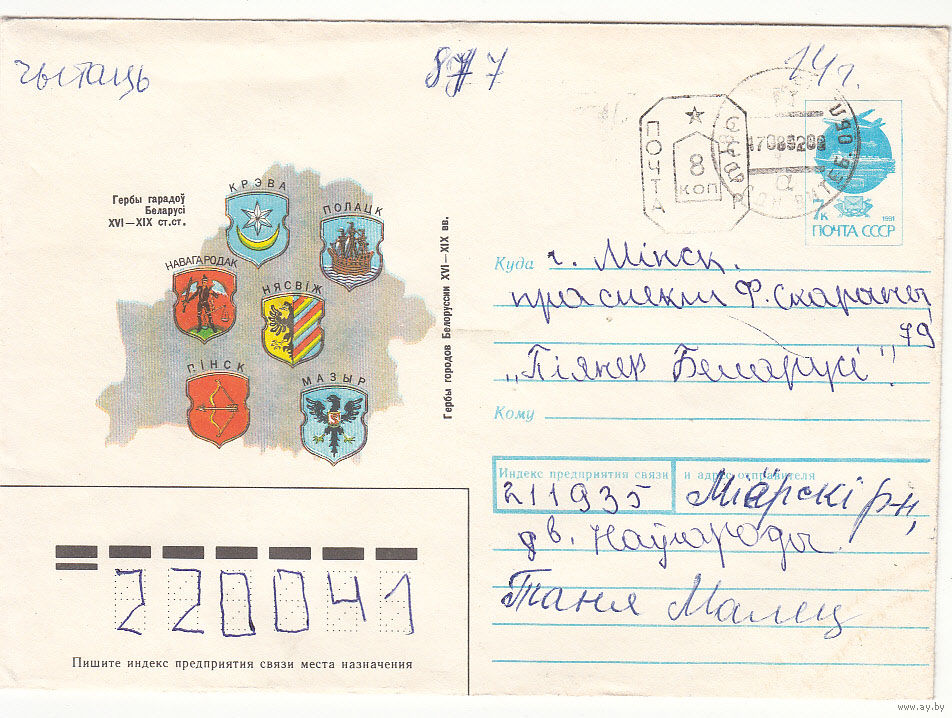 чытаць
877
14 г.
Гербы гарадоў
Беларусі
XVI—XIX ст.ст.
КРЭВА
ПОЛАЦК
НАВАГАРОДАК
НЯСВІЖ
ПІНСК
МАЗЫР
Гербы городов Белоруссии XVI—XIX вв.
ПОЧТА
8
коп
7к
1991
ПОЧТА СССР
Куда г. Мінск.
праспект Ф. Скарыны
79
„Піянер Беларусі".
Кому
Индекс предприятия связи и адрес отправителя
211935 Мёрскі р-н,
дв. Наўгароды.
Таня Малец
220041
Пишите индекс предприятия связи места назначения
www.ay.by